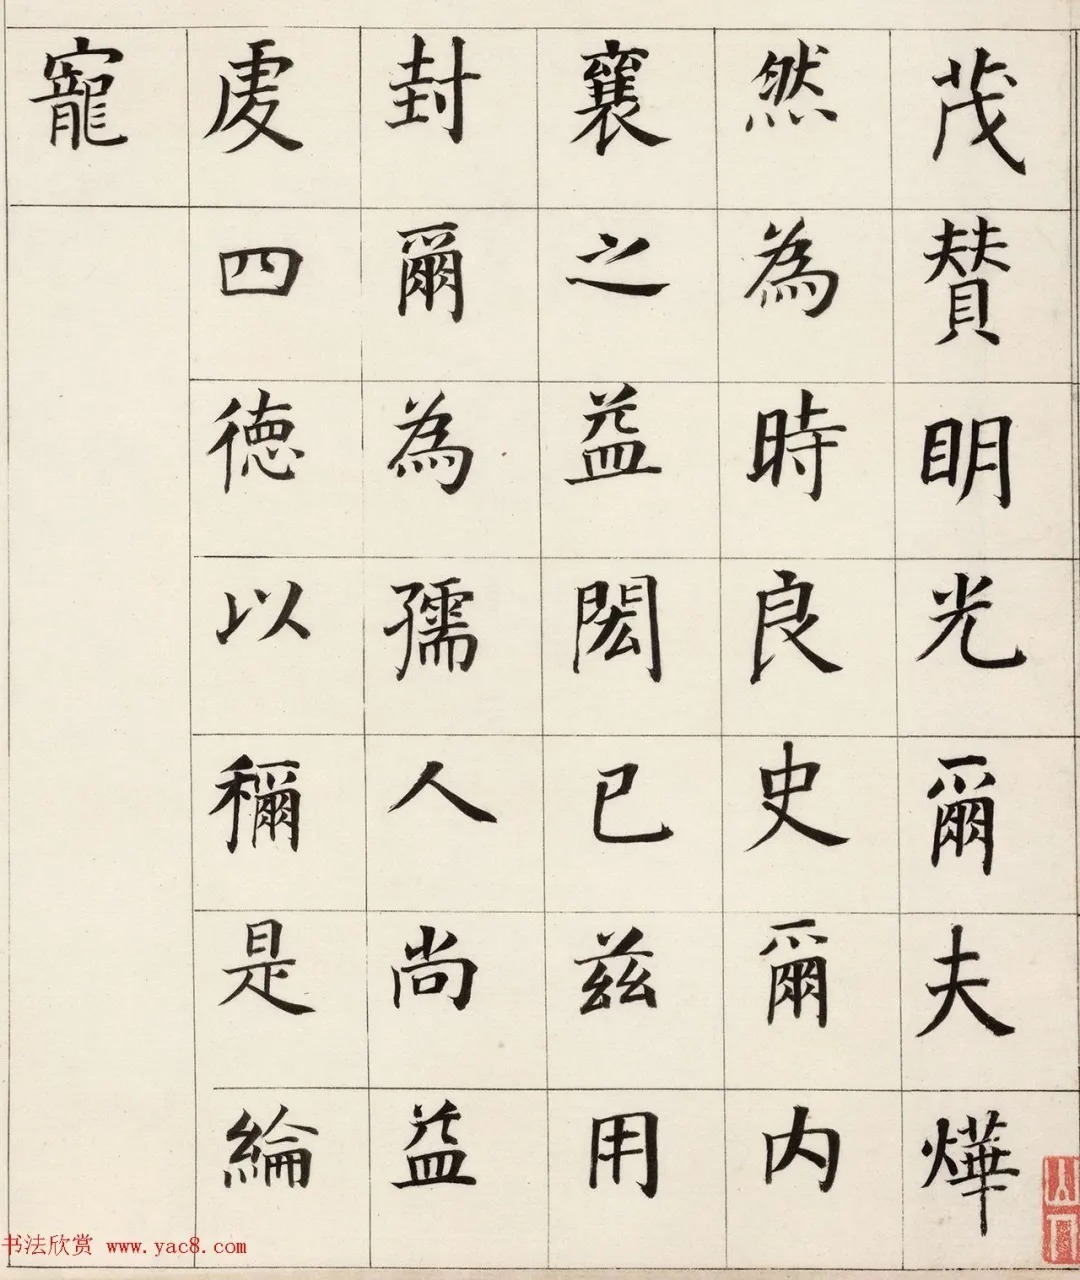 茂賛明光爾夫燁
然為時良史爾内
襄之益閎已茲用
封爾為孺人尚益
虔四德以稱是綸
寵
书法欣赏 www.yac8.com